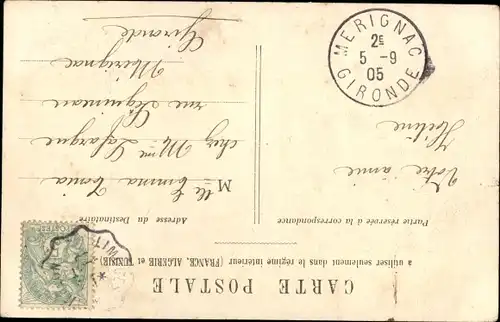 CARTE POSTALE
à utiliser seulement dans le régime intérieur (FRANCE, ALGÉRIE et TUNISIE)
Partie réservée à la correspondance
Adresse du Destinataire
Votre amie
Hélène
Mlle Emma
chez Mme Lafargue
rue
Mérignac
Gironde
MERIGNAC
2E
5 -9
05
GIRONDE
POSTES